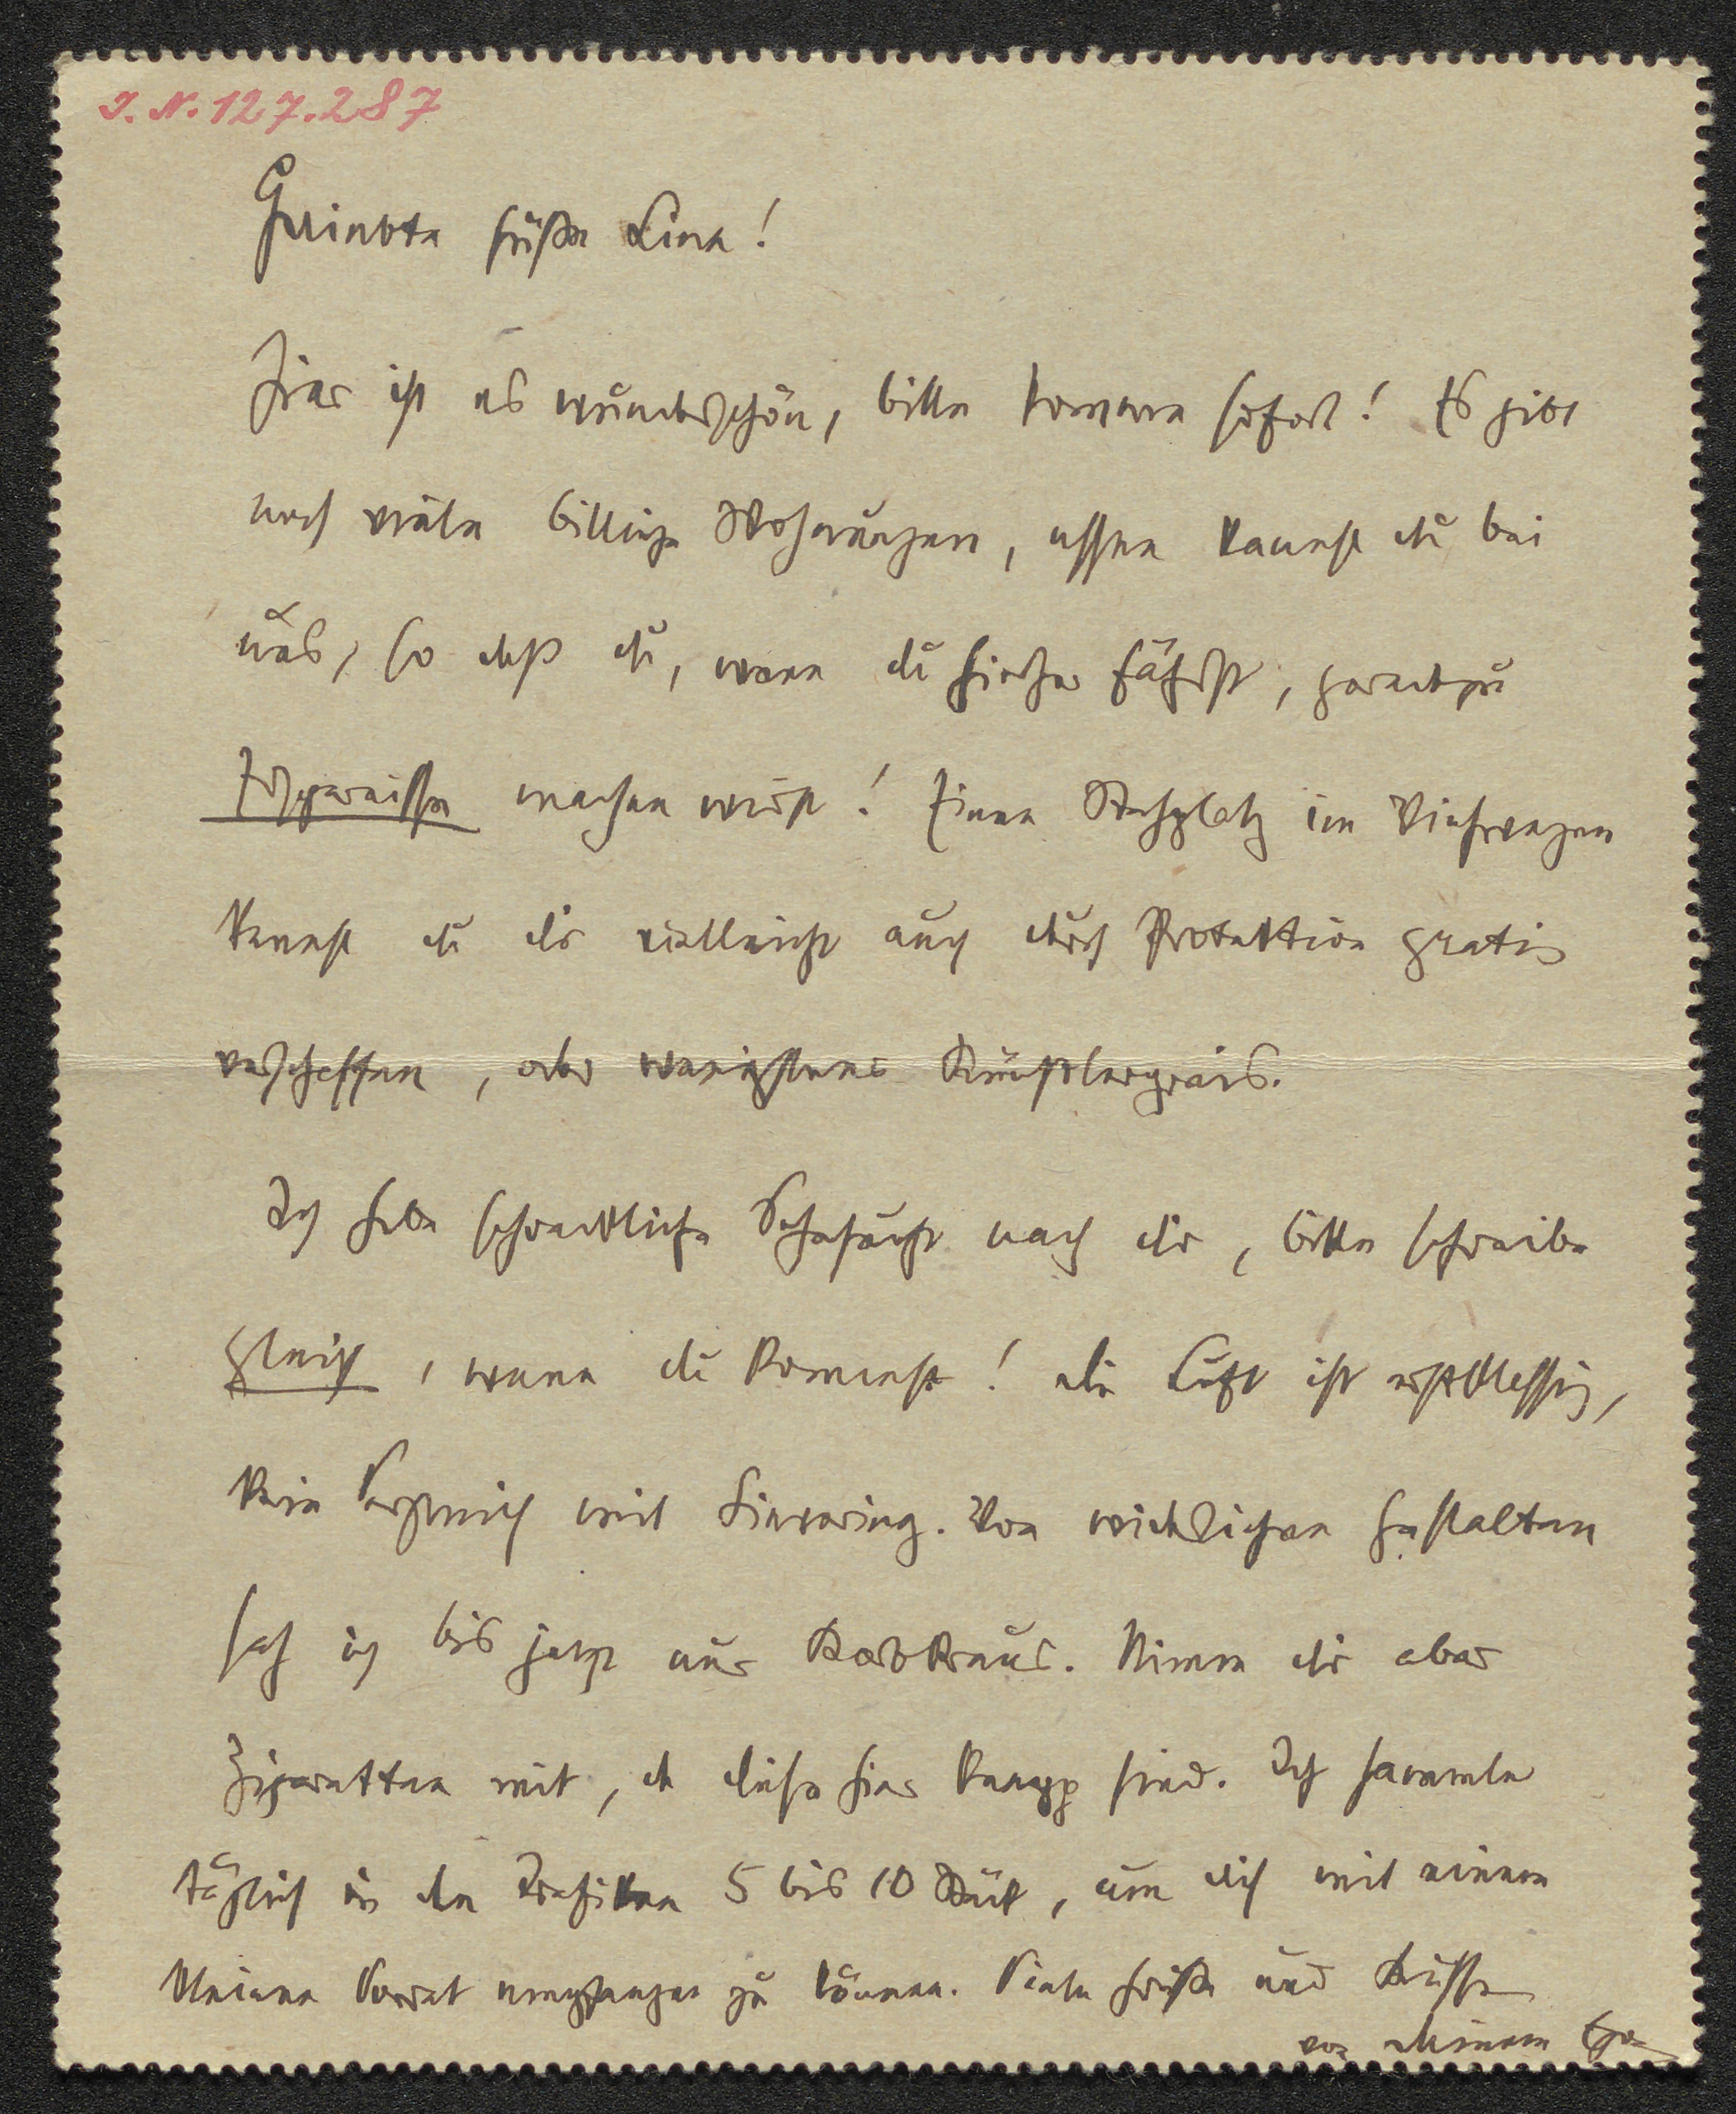 I. N. 127.287
Geliebte süße Lina!
Hier ist es wunderschön, bitte komme sofort! Es gibt
noch viele billige Wohnungen, essen kannst du bei
uns, so daß du, wenn du hierher fährst, geradezu
Ersparnisse machen wirst! Einen Stehplatz im Viehwagen
kannst du dir vielleicht auch durch Protektion gratis
verschaffen, oder wenigstens Künstlerpreis.
Ich habe schreckliche Sehnsucht nach dir, bitte schreibe
gleich, wann du kommst! die Luft ist erstklassig,
kein Vergleich mit Sievering. Von wichtigen Gestalten
sah ich bis jetzt nur Karl Kraus. Nimm dir aber
Zigaretten mit, da diese hier knapp sind. Ich sammle
täglich in den Trafiken 5 bis 10 Stück, um dich mit einem
kleinen Vorrat empfangen zu können. Viele Grüße und Küsse
von deinem